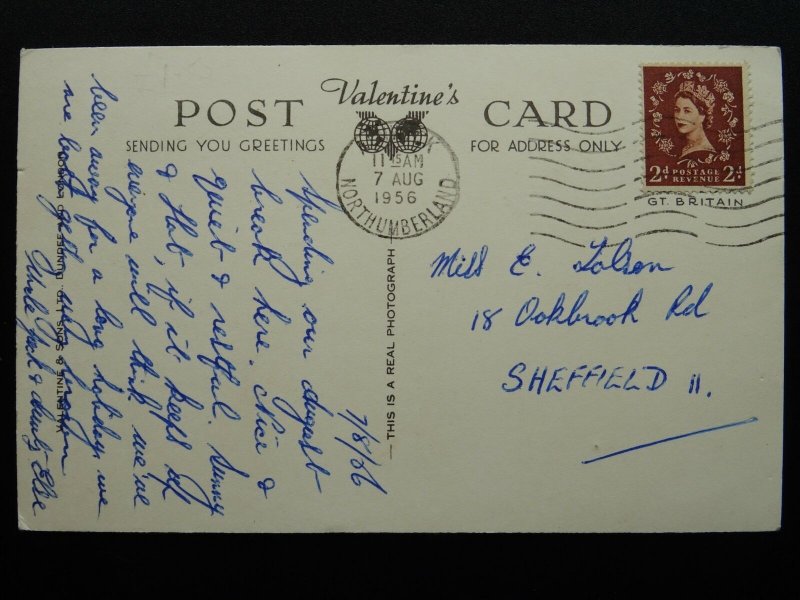 POST Valentine's CARD
SENDING YOU GREETINGS FOR ADDRESS ONLY
11 15 AM
7 AUG
1956
NORTHUMBERLAND
2d POSTAGE REVENUE 2d
GT. BRITAIN
7/8/56
Spending our August
break here. Nice &
quiet & restful. Sunny
& Hot, if it keeps up
everyone will think we've
been away for a long holiday, we
are both
Uncle Jack & Aunty Else
Miss E. Tolson
18 Oakbrook Rd
SHEFFIELD 11.
THIS IS A REAL PHOTOGRAPH
VALENTINE & SONS, LTD. DUNDEE AND LONDON